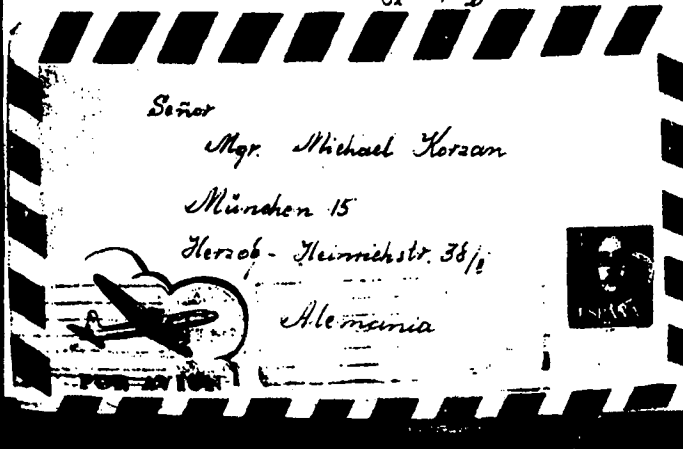 Señor
Mgr. Michael Korzan
München 15
Herzog-Heinrichstr. 38/I
Alemania
ESPAÑA
POR AVION